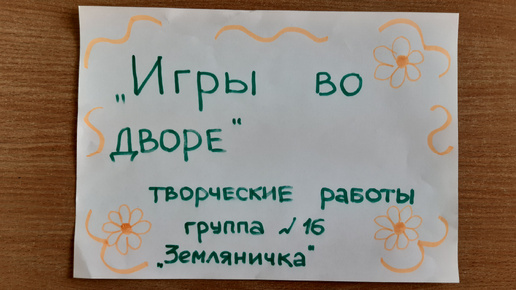 „Игры во
дворе"
творческие работы
группа №16
„Земляничка"